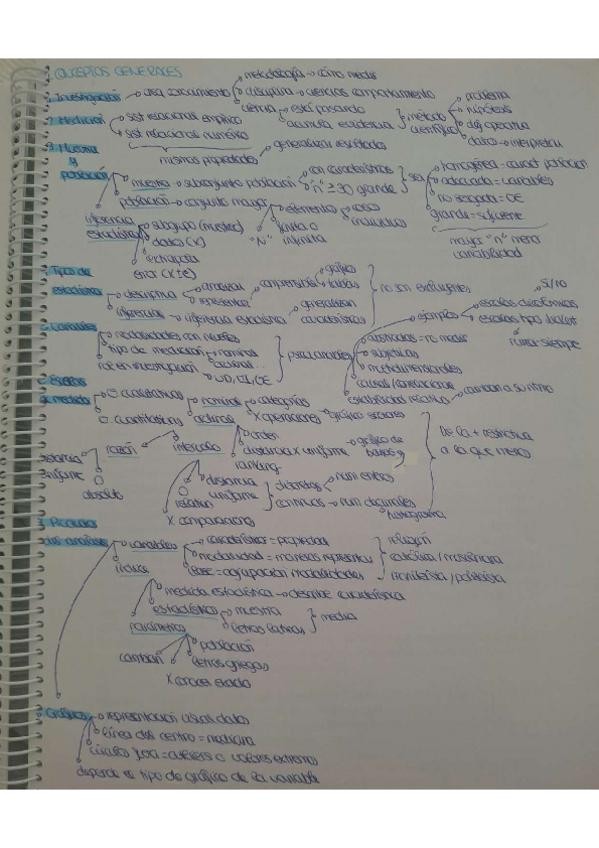 CONCEPTOS GENERALES
1. Investigación → área conocimiento
metodología → cómo medir
disciplina → ciencias comportamiento
ciencia → está pasando
acumula evidencia
método científico
problema
hipótesis
def operativa
datos → interpretar
2. Medición
sist relacional empírico
sist relacional numérico
mismas propiedades
3. Muestra y población
generalizar resultados
muestra → subconjunto población
con características
"n" ≥ 30 grande
sea
homogénea = caract población
adecuada = variables
no sesgada =
grande = suficiente
mayor "n" menor variabilidad
población → conjunto mayor
elementos
individuos
finita o infinita
"N"
inferencia estadística
subgrupo (muestra)
datos (X)
extrapola
error
Tipos de estadística
descriptiva
analizar
representar
comprensible
gráfico
tablas
inferencial → inferencia estadística
generalizan características
no son excluyentes
Variables
modalidades con niveles
tipo de medición
nominal
ordinal...
rol en investigación
VD, VI, VE
psicosociales
abstractas → no medir
subjetivas
multidimensionales
causas / correlaciones
estabilidad relativa → cambian a su ritmo
ejemplos
escalas dicotómicas
SI/NO
escalas tipo likert
sumar siempre
Escalas de medida
cualitativas
nominal → categorías
X operaciones
gráfico sectores
cuantitativas
ordinal
orden
distancia X uniforme
ranking
gráfico de barras
intervalo
distancia uniforme
O relativo
X comparaciones
discretas → num enteros
continuas → num decimales
histograma
razón
distancia uniforme
O absoluto
De la + restrictiva a la que menos
variables
característica = propiedad
modalidad = maneras representar
clase = agrupación modalidades
relación
índice
medida estadística → describe característica
estadístico
muestra
letras latinas
media
parámetro
población
letras griegas
cambian
X conocer exacto
Gráficos → representación visual datos
línea del centro = mediana
valores extremos
depende el tipo de gráfico de la variable